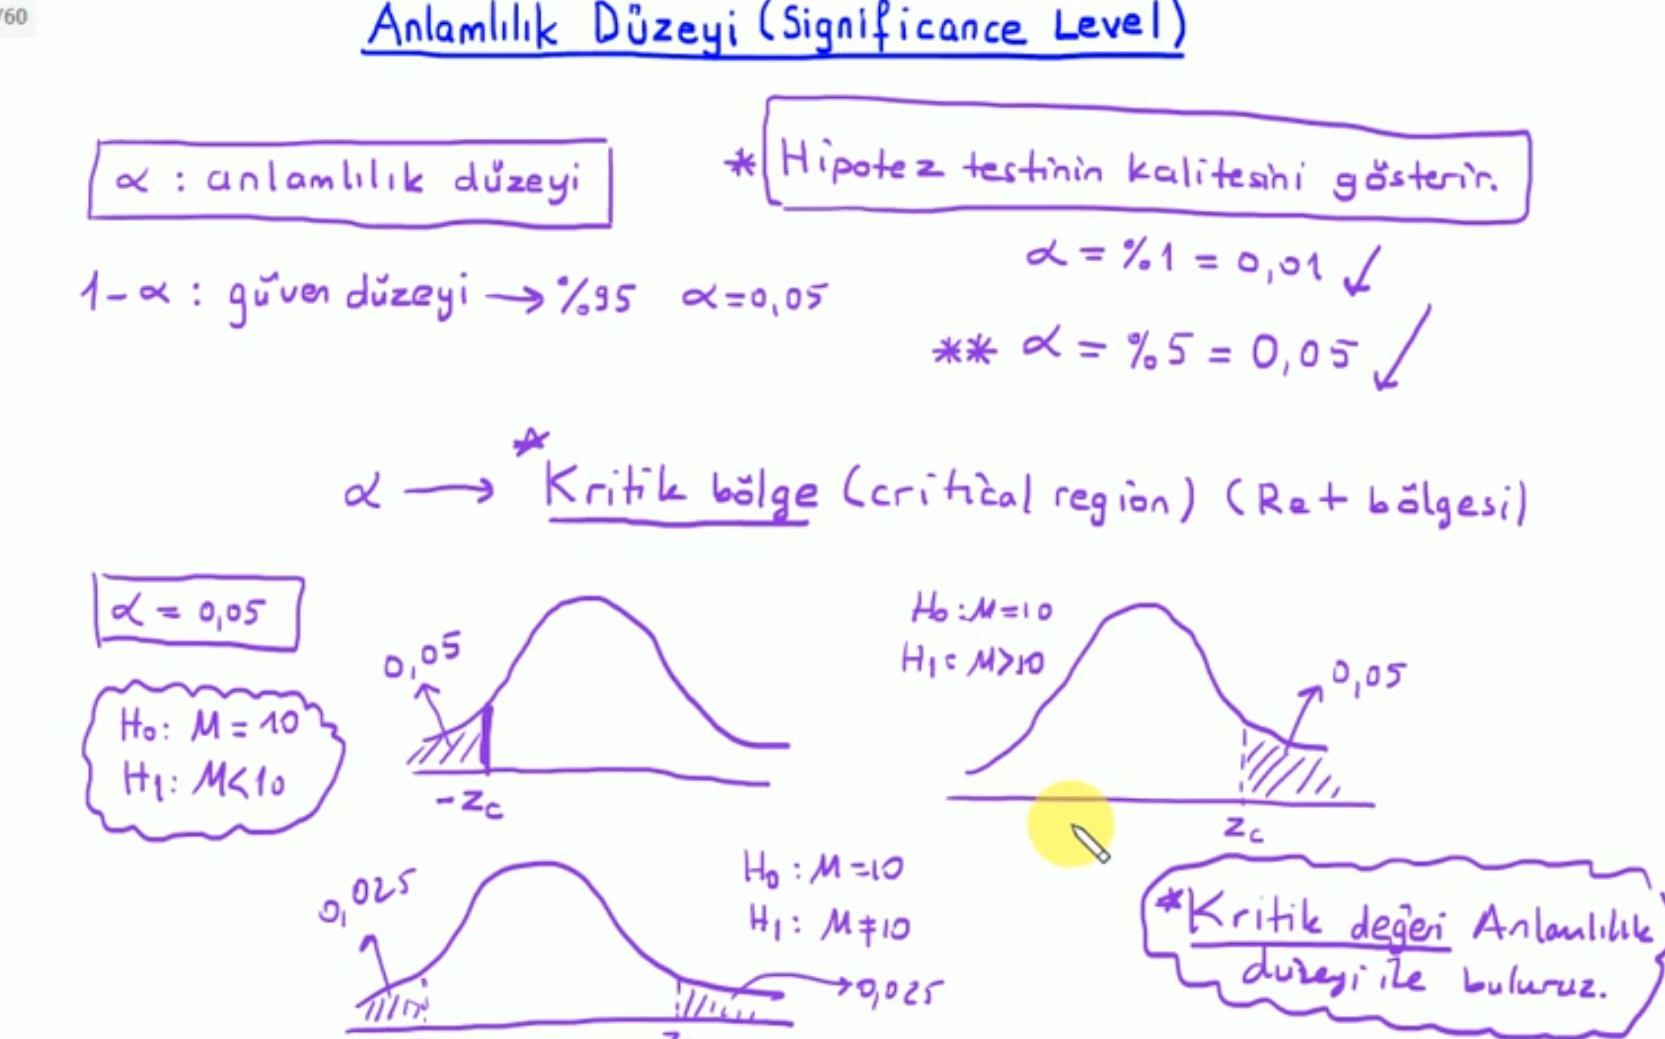 /60
Anlamlılık Düzeyi (Significance Level)
α : anlamlılık düzeyi
* Hipotez testinin kalitesini gösterir.
α = %1 = 0,01
1-α : güven düzeyi → %95 α=0,05
** α = %5 = 0,05
α → * Kritik bölge (critical region) (Ret bölgesi)
α = 0,05
H₀: M = 10
H₁: M<10
0,05
-Zc
H₀ : M=10
H₁ : M>10
0,05
Zc
0,025
H₀ : M=10
H₁ : M≠10
→0,025
*Kritik değeri Anlamlılık
düzeyi ile buluruz.